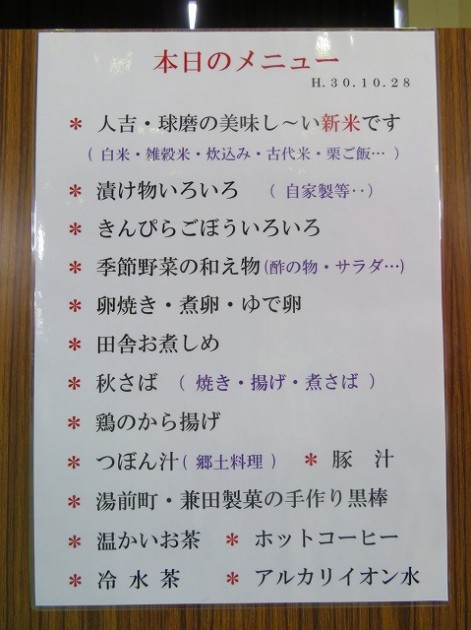 本日のメニュー
H.30.10.28
＊ 人吉・球磨の美味し～い新米です
(白米・雑穀米・炊込み・古代米・栗ご飯… )
＊ 漬け物いろいろ (自家製等‥)
＊ きんぴらごぼういろいろ
＊ 季節野菜の和え物(酢の物・サラダ…)
＊ 卵焼き・煮卵・ゆで卵
＊ 田舎お煮しめ
＊ 秋さば (焼き・揚げ・煮さば)
＊ 鶏のから揚げ
＊ つぼん汁(郷土料理) ＊ 豚 汁
＊ 湯前町・兼田製菓の手作り黒棒
＊ 温かいお茶 ＊ ホットコーヒー
＊ 冷 水 茶 ＊ アルカリイオン水